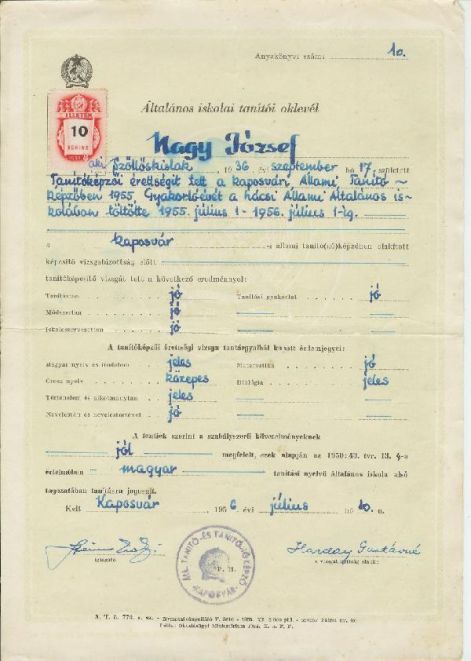 Anyakönyvi szám: 10.
ILLETÉK
10
FORINT
Általános iskolai tanítói oklevél
Nagy József
aki Szőllőskislak 1936 év szeptember hó 17. született
Tanítóképzői érettségit tett a kaposvári Állami Tanító-
képzőben 1955. Gyakorlóévét a hácsi Állami Általános is-
kolában töltötte 1955. július 1-1956. július 1-ig.
a kaposvár -i állami tanító(nő)képzőben alakított
képesítő vizsgabizottság előtt
tanítóképesítő vizsgát tett a következő eredménnyel:
Tanítástan jó Tanítási gyakorlat jó
Módszertan jó
Iskolaszervezettan jó
A tanítóképzői érettségi vizsga tantárgyaiból kapott érdemjegyei:
Magyar nyelv és irodalom jeles Matematika jó
Orosz nyelv közepes Biológia jeles
Történelem és alkotmánytan jeles
Neveléstan és neveléstörténet jó
A fentiek szerint a szabályszerű követelményeknek
jól megfelelt, ezek alapján az 1950:43. tvr. 13. §-a
értelmében magyar tanítási nyelvű általános iskola alsó
tagozatában tanításra jogosult.
Kelt Kaposvár 1956 évi július hó 10. n.
Harday Gusztávné
igazgató P. H. a vizsgabizottság elnöke
ÁLL. TANÍTÓ- ÉS TANÍTÓNŐKÉPZŐ
KAPOSVÁR